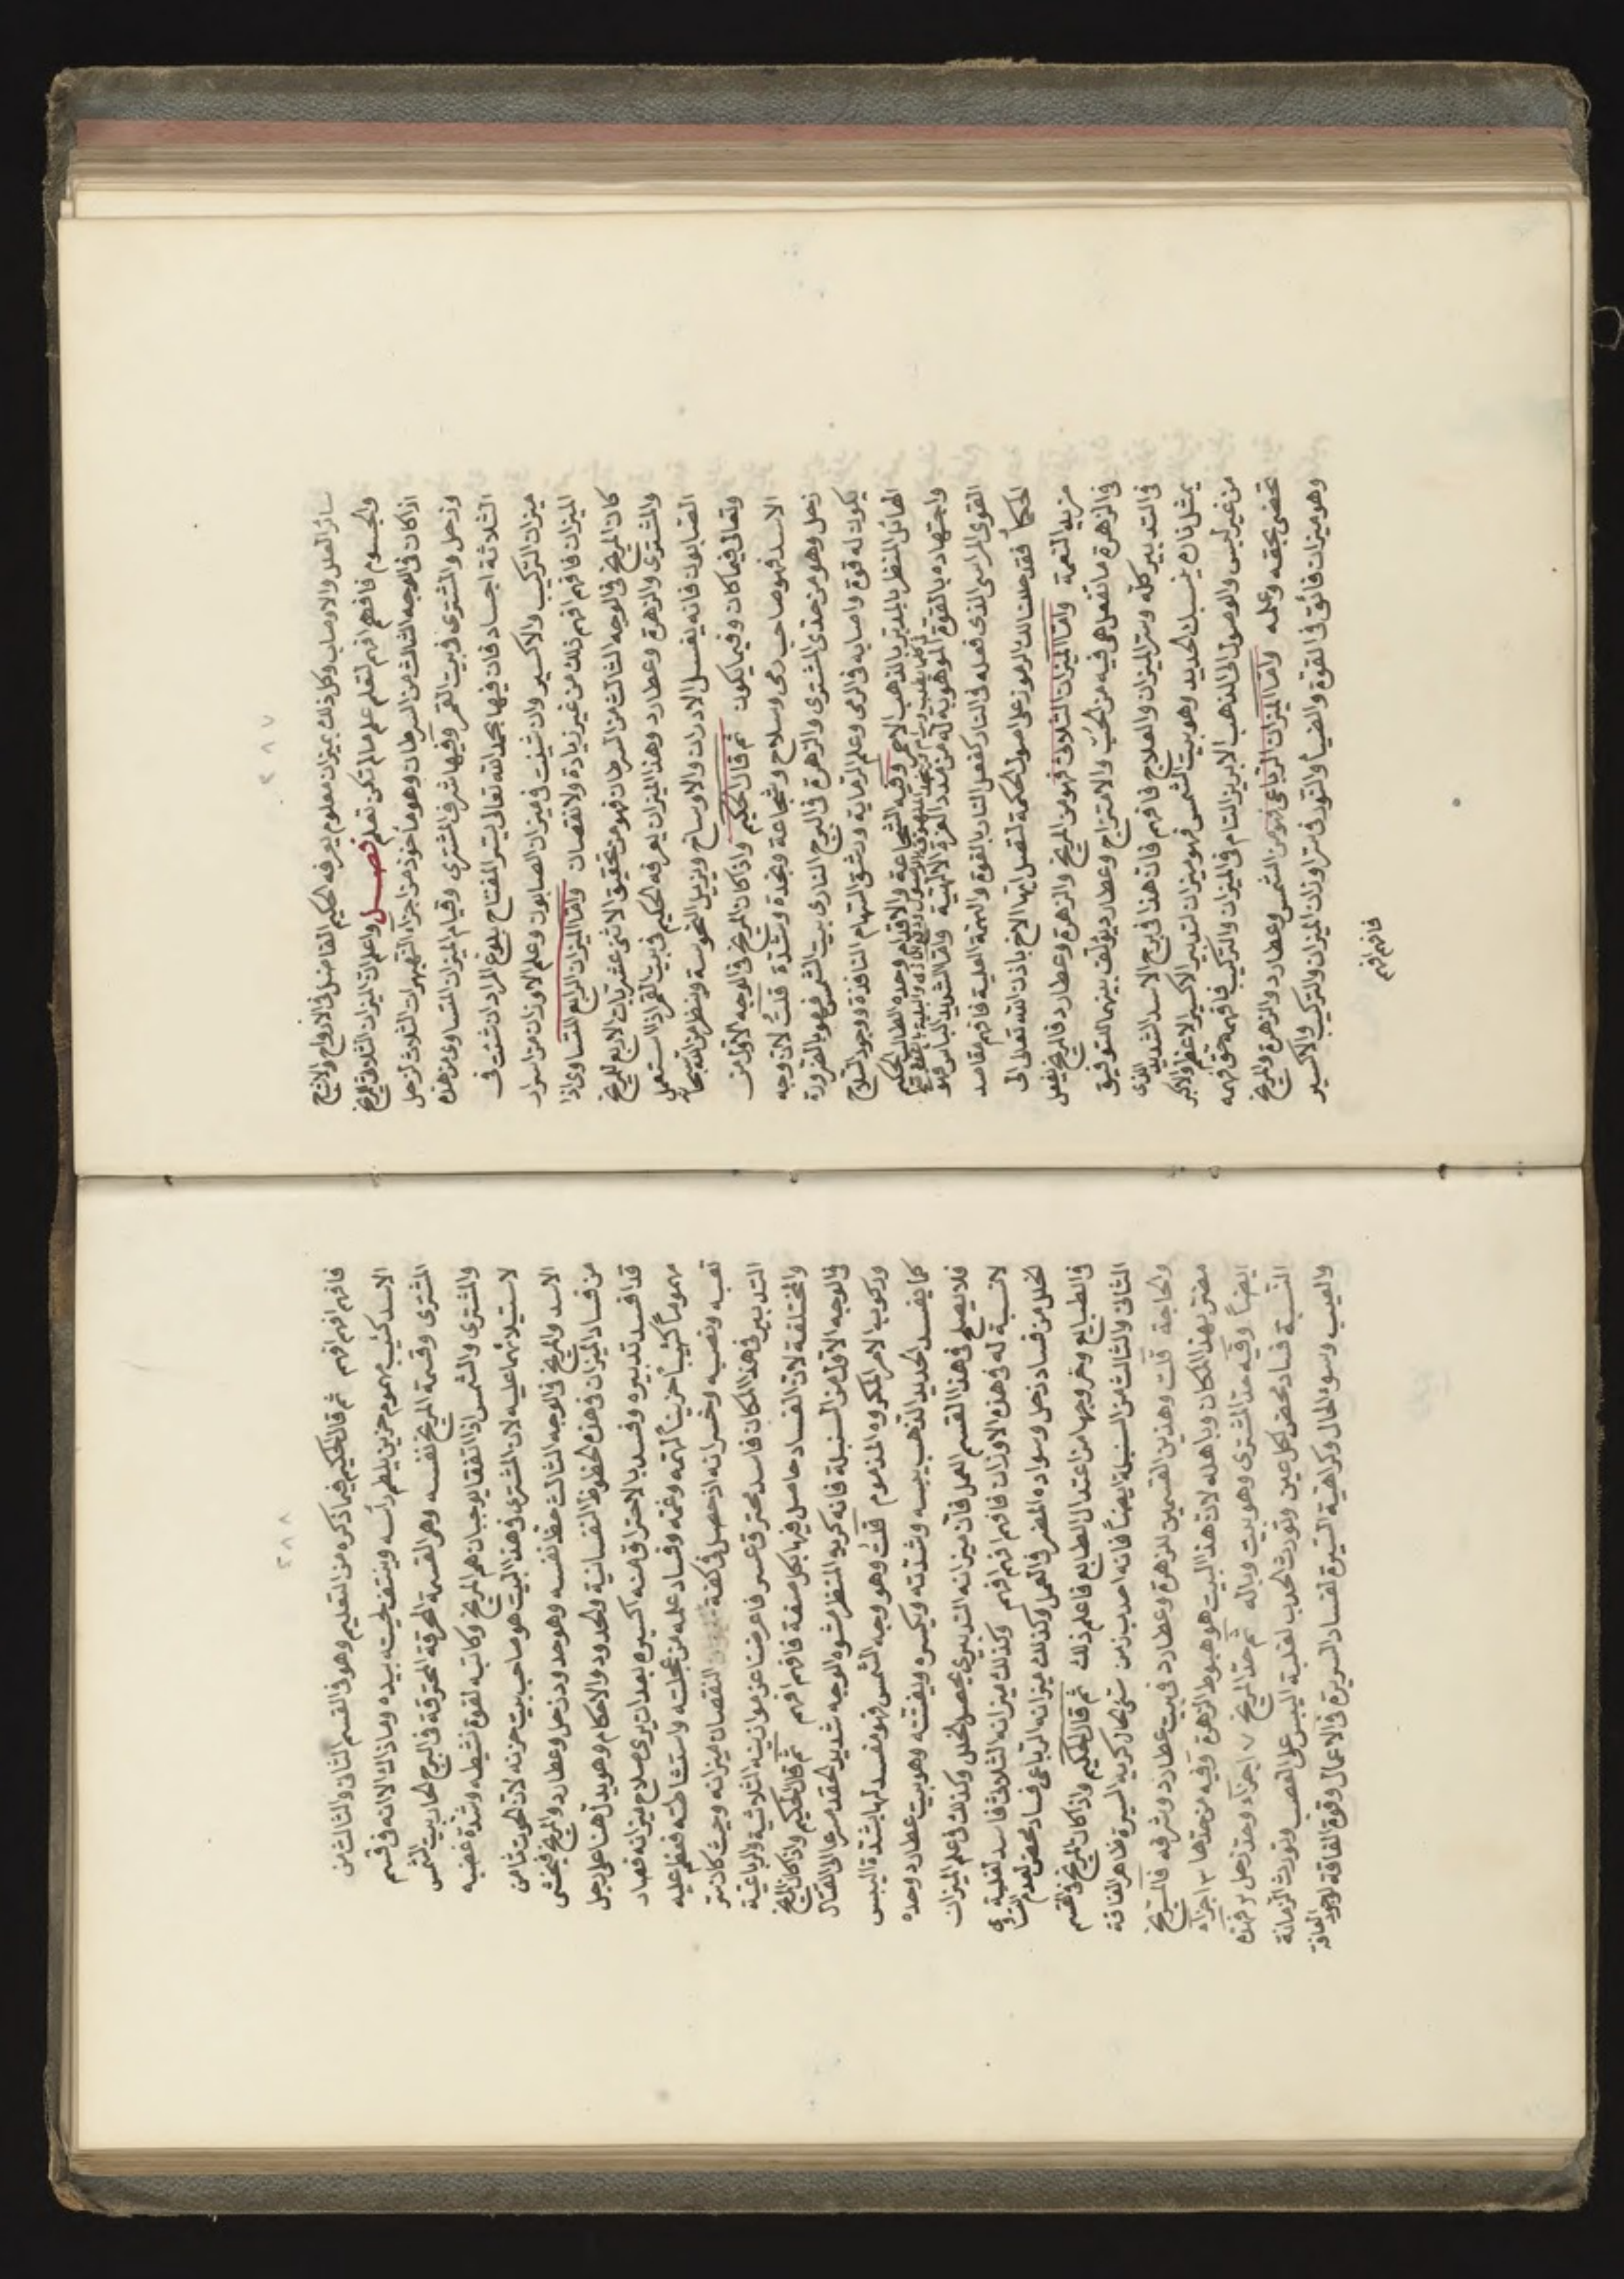 ٢٨٧
سائر العلل والاوصاب وكل ذلك بميزان معلوم يعرفه الحكيم الفاضل في الارواح والاشباح
والجسوم فافهم افهم لتعلم علم ما لم تكن تعلم فصل واعلم ان الميزان الثلاثي للمريخ
اذا كان في الوجه الثالث من السرطان وهو مأخوذ من اجزاء الثلاث لزحل
وزحل والمشتري في بيت القمر وفيها شرف المشتري وقيام الميزان المتساوي من هذه
الثلاثة اجساد فان فيها بحمد الله تعالى يتسر المفتاح بلوغ المراد ان شئت في
ميزان التركيب والاكسير وان شئت في ميزان الصابون وعلم الاوزان من اسرار
الميزان فافهم افهم ذلك من غير زيادة ولا نقصان واما الميزان الرابع المتساوي اذا
كان المريخ في الوجه الثالث من السرطان فهو من تحقيق الاثنى عشريات الاربع للمريخ
والمشتري والزهرة وعطارد وهذا الميزان يعرفه الحكيم في بيت القمر اذا استعمل
الصابون فانه يغسل الادران والاوساخ ويزيل النحوسة وينظر من الله سبحانه
وتعالى فيما كان وفيما يكون ثم قال الحكيم واذا كان المريخ في الوجه الاول من
الاسد فهو صاحب رمي وسلاح وشجاعة ونجدة وشدة قلت لان وجه
زحل وهو من حدي المشتري والزهرة في البرج الناري بيت الشمس فهو بالضرورة
يكون له قوة واصابه في الرمي وعلم الرماية ورشق السهام النافذة ووجود السلاح
الهائل المنظر بالمدبر بالذهب الاحمر وفيه الشجاعة والاقدام وحده الطالب الحكيم
واجتهاده بالقوة الموهوبة له من مدد العزة الالهية واما الشديد الباس فهو
القوي المراس الذي فعله في النار كفعل النار بالقوة والهمة العلية فافهم مقاصد
الحكماء فقد حللت لك الرموز على اصول الحكمة لتصل ايها الاخ باذن الله تعالى الى
مزيد النعمة واما الميزان الثلاثي فهو من المريخ والزهرة وعطارد فالمريخ يفعل
في الزهرة ما تفعل هي فيه من الحب والامتزاج وعطارد يؤلف بينهما للتوفيق
في التدبير كله وسر الميزان والعلاج فافهم فان هذا في برج الاسد الشديد الذي
يمثل ناره نيسان الحديد وهو بيت الشمس فهو ميزان لتدبير الاكسير الاعظم والاكبر
من غير لبس والوصول الى الذهب الابريز التام في الميزان والتركيب فافهمه حق فهمه
تحضى بحقه وعلمه واما الميزان الرباعي فهو من الشمس وعطارد والزهرة والمريخ
وهو ميزان فائق في القوة والضياء والنور في سر اوزان الميزان والتركيب والاكسير
فافهم افهم
٢٨٨
فافهم افهم افهم ثم قال الحكيم فيما ذكره من التعليم وهو في القسم الثاني والثالث من
الاسد كئيب مهموم حزين يلطم رأسه وينتف لحيته بيده وماذاك الا انه في قسم
المشتري وقسمة المريخ نفسه وهي القسمة المحرقة المحترقة في البرج الحار بيت الشمس
والمشتري والشمس اذا اتفقا يوجبان هم المريخ وكآبته لقوة نشيطه وشدة غضبه
لاستيلائهما عليه لان المشتري في هذا البيت هو صاحب بيت حزنه لان الحوت ثامن
الاسد والمريخ في الوجه الثالث حظ نفسه وهو حدود زحل وعطارد والمريخ فيخشى
من فساد الميزان في هذه الحظوظ النفسانية والحدود والاحكام وهو يدل هنا على رجل
قد افسد تدبيره وفسد بالاحتراق منه اكسيره بعد ان يرى صلاح ميزانه فصاد
مهموماً كئيباً حزيناً لهمه وغمه وفساد علمه من عجلته واستشاطته فعظم عليه
تعبه ونصبه وخسرانه اذ حصل في كفة النقصان ميزانه وحيث كان سر
التدبير في هذا المكان فاسد محترق عسر فاعرضنا عن موازينه الثلاثية والرباعية
والمختلفة لان الفساد حاصل فيها بكل صفة فافهم افهم ثم قال الحكيم واذا كان المريخ
في الوجه الاول من السنبلة فانه كريه المنظر مشوه الوجه شديد الحقد مسرعا الى القتال
وركوب الامر المكروه المذموم قلت وهو وجه الشمس فهو مفسد لها بشدة اليبس
كما يفسد الحديد الذهب بيبسه وشدته ويكسره ويفتته وهو بيت عطارد وحده
فلا يصلح في هذا القسم العمل فان ميزانه التدبيري يحصل الخلل وكذلك في علم الميزان
لا نسبة له في هذه الاوزان فافهم افهم وكذلك ميزانه الثلاثي فاسد لغلبة
الخلل من فساد زحل وسواده المضر في العمل وكذلك ميزانه الرباعي فساد محض لعدم
في الطبايع وخروجها من اعتدال الطبايع فاعلم ذلك ثم قال الحكيم واذا كان المريخ في القسم
الثاني والثالث من السنبلة ايضاً فانه احدب زمن سيئ الحال كريه السيرة ظاهر الفاقة
والحاجة قلت وهذين القسمين للزهرة وعطارد في بيت عطارد وشرفه فالمريخ
مضر بهذا المكان وباهله لان هذا البيت هو هبوط الزهرة وفيه من حدها ٣ اجزاء
ايضاً وفيه حد المشتري وهو بيت وباله ثم حد المريخ ٧ اجزاء وحد زحل ٢ فهذه
النسبة فساد محض لكل عين وتورث الحدب لغلبة اليبس على العصب وتورث الزمانة
والعيب وسوء الحال وكراهية السيرة لفساد السريرة في الاعمال وقوة الفاقة لوجود الفاقة